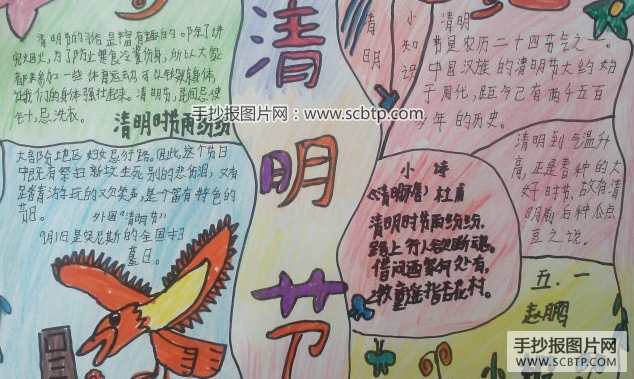 清明节的习俗是丰富有趣的,除了讲
究禁火,为了防止寒食冷餐伤身,所以大家
都来参加一些体育运动,可以锻炼身体,
让我们的身体强壮起来。清明节,民间忌使
针,忌洗衣。
清明时节雨纷纷
大部分地区妇女忌行路。因此,这个节日
中既有祭扫新坟生死别的悲伤泪,又有
踏青游玩的欢笑声,是个富有特色的
节日。
外国“清明节”
9月1日是突尼斯的全国扫
墓日。
清
明
节
清明
小知识
清明
节是农历二十四节气之一。
中国汉族的清明节大约始
于周代,距今已有两千五百
多年的历史。
小诗
《清明》杜甫
清明时节雨纷纷,
路上行人欲断魂。
借问酒家何处有,
牧童遥指杏花村。
清明到气温升
高,正是春种的大
好时节,故有清
明前后种瓜点
豆之说。
五.一
赵鹏
手抄报图片网:www.scbtp.com
手抄报图片网
WWW.SCBTP.COM